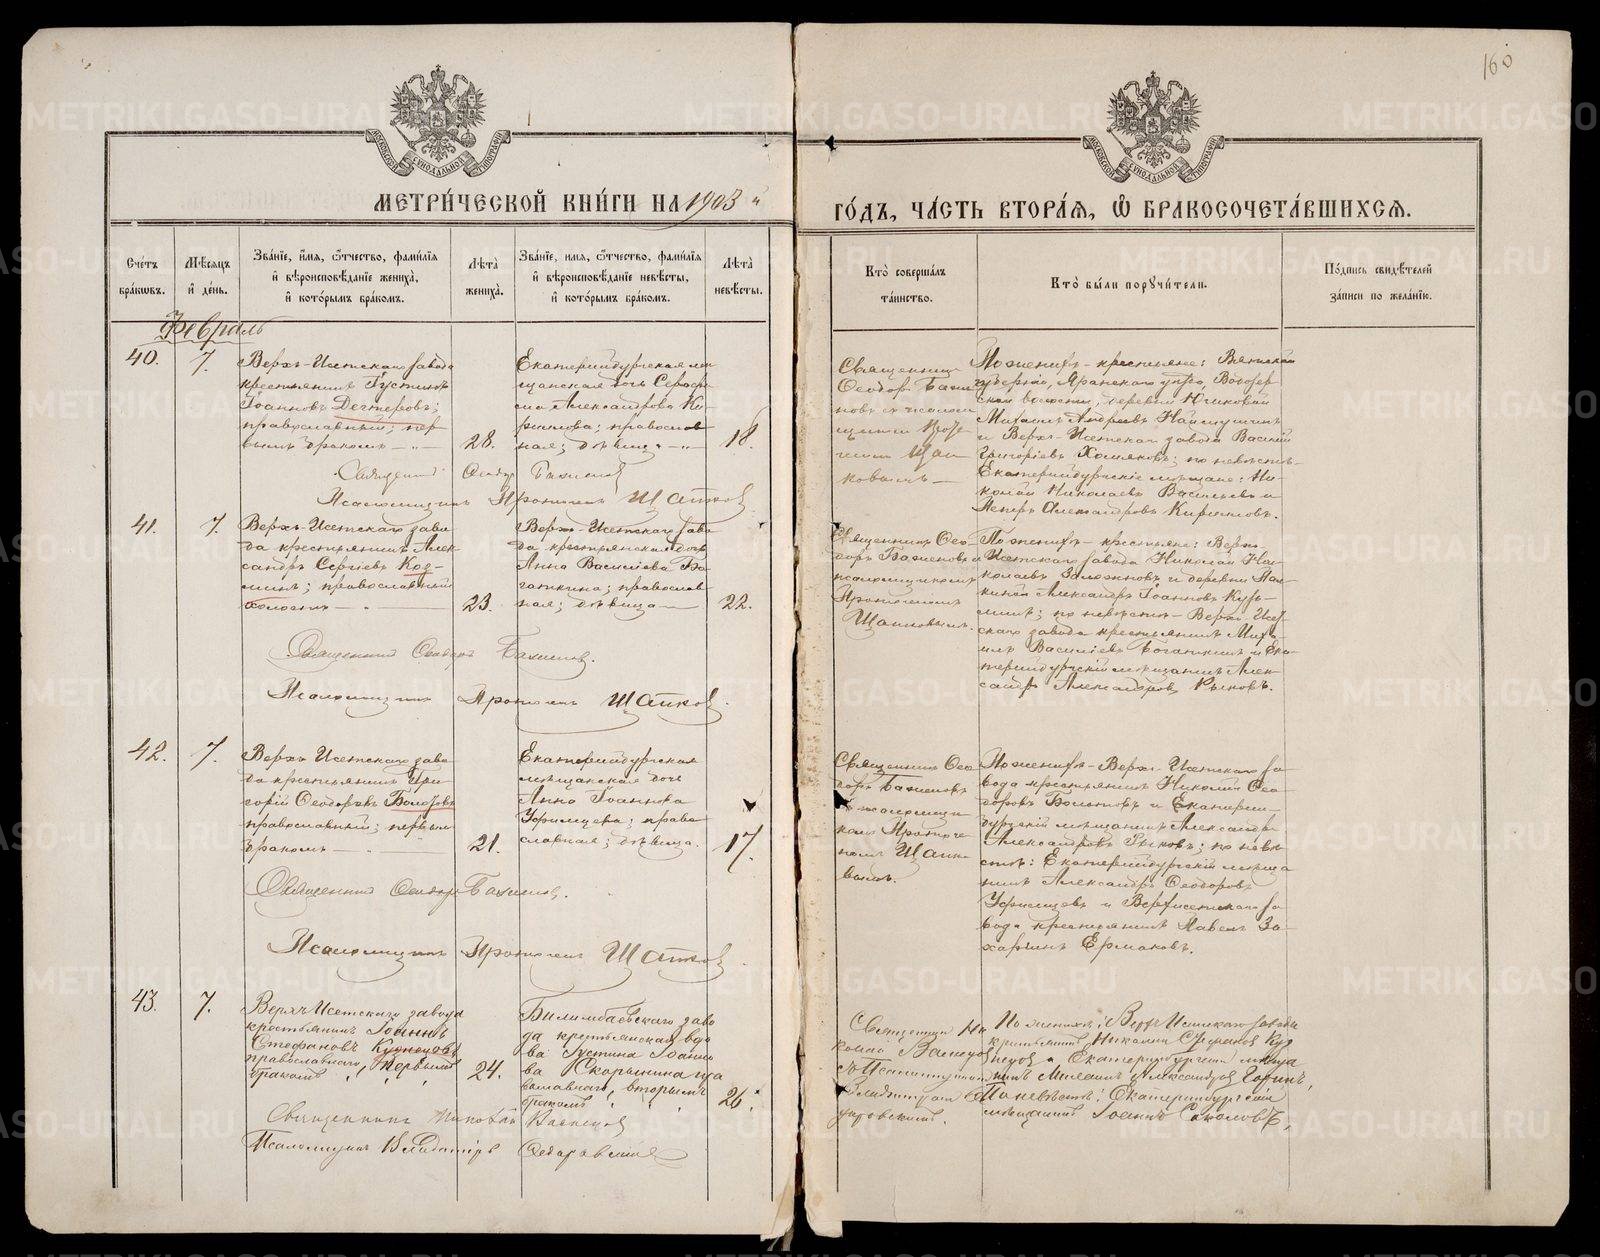 160
МОСКОВСКОЙ СѴНОДАЛЬНОЙ ТИПОГРАФІИ
МОСКОВСКОЙ СѴНОДАЛЬНОЙ ТИПОГРАФІИ
МЕТРИ́ЧЕСКОЙ КНИ́ГИ НА 1903 й
ГО́ДЪ, ЧА́СТЬ ВТОРА́Я, Ѽ БРАКОСОЧЕТА́ВШИХСЯ.
Сче́тъ бра́кѡвъ.
Мѣ́сяцъ и̂ де́нь.
Зва́нїе, и̂́мя, ѻ̂́тчество, фами́лїя и̂ вѣроисповѣ́данїе жениха̀, и̂ кото́рымъ бра́комъ.
Лѣ́та жениха̀.
Зва́нїе, и́мя, ѻ̂́тчество, фами́лїя и̂ вѣроисповѣ́данїе невѣ́сты, и̂ кото́рымъ бра́комъ.
Лѣ́та невѣ́сты.
Кто̀ соверша́лъ та́инство.
Кто̀ бы́ли порꙋчи́тели.
По́дпись свидѣ́телей за́писи по жела́нїю.
Февраль
40.
7.
Верхъ-Исетскаго завода
крестьянинъ Густинъ
Іоанновъ Дегтеровъ;
православный; пер-
вымъ бракомъ
28.
Екатеринбургская мѣ-
щанская дочь Серафи-
ма Александрова Ки-
рилова; православ-
ная; дѣвица
18.
Священникъ
Ѳеодоръ Баже-
новъ съ псалом-
щикомъ Прото-
геномъ Щап-
ковымъ
По женихѣ - крестьяне: Вятской
губерніи, Яранскаго уѣзда,
волости, деревни
Михаилъ Андреевъ Наймушинъ
и Верхъ-Исетскаго завода Василій
Григоріевъ Хомяковъ; по невѣстѣ-
Екатеринбургскіе мѣщане: Ни-
колай Николаевъ Васильевъ и
Петръ Александровъ Кириловъ.
Священникъ Ѳеодоръ Баженовъ
Псаломщикъ Протогенъ Щапковъ
41.
7.
Верхъ-Исетскаго заво-
да крестьянинъ Алек-
сандръ Сергіевъ Коз-
минъ; православный
холостъ
23.
Верхъ-Исетскаго заво-
да крестьянская дочь
Анна Василіева Бо-
гаткина; православ-
ная; дѣвица
22.
Священникъ Ѳео-
доръ Баженовъ и
псаломщикомъ
Протогеномъ
Щапковымъ.
По женихѣ - крестьяне: Верхъ-
Исетскаго завода Николай Ни-
колаевъ и деревни Пал-
кина Александръ Іоанновъ Кузь-
минъ; по невѣстѣ - Верхъ-Исет-
скаго завода крестьянинъ Миха-
илъ Василіевъ Богаткинъ и Ека-
теринбургскій мѣщанинъ Алек-
сандръ Александровъ Рыковъ.
Священникъ Ѳеодоръ Баженовъ.
Псаломщикъ Протогенъ Щапковъ.
42.
7.
Верхъ-Исетскаго заво-
да крестьянинъ Гри-
горій Ѳеодоровъ Болотовъ
православный; первымъ
бракомъ
21.
Екатеринбургская
мѣщанская дочь
Анна Іоаннова
Уфимцева; право-
славная; дѣвица.
17.
Священникъ Ѳео-
доръ Баженовъ
съ псаломщи-
комъ Протоге-
номъ Щапко-
вымъ.
По женихѣ - Верхъ-Исетскаго за-
вода крестьянинъ Николай Ѳео-
доровъ Болотовъ и Екатерин-
бургскій мѣщанинъ Александръ
Александровъ Рыковъ; по невѣ-
стѣ: Екатеринбургскій мѣща-
нинъ Александръ Ѳеодоровъ
Уфимцевъ и Верхисетскаго за-
вода крестьянинъ Павелъ За-
харьинъ Ермаковъ.
Священникъ Ѳеодоръ Баженовъ.
Псаломщикъ Протогенъ Щапковъ.
43.
7.
Верхъ Исетскаго завода
крестьянинъ Іоаннъ
Стефановъ Кузнецовъ
православнаго, первымъ
бракомъ
24.
Билимбаевскаго заво-
да крестьянская вдо-
ва Іустина Іоанно-
ва Скорынина пра-
вославнаго, вторымъ
бракомъ
26.
Священникъ Ни-
колай Васнецовъ
Псаломщикомъ
Владиміръ Ѳе-
доровскимъ.
По женихѣ: Верхъ Исетскаго завода
крестьянинъ Николай Стефановъ Куз-
нецовъ и Екатеринбургскій мѣща-
нинъ Михаилъ Александровъ
По невѣстѣ: Екатеринбургскій
мѣщанинъ Іоаннъ Соколовъ,
Священникъ Николай Васнецовъ
Псаломщикъ Владиміръ Ѳедоровскій
METRIKI.GASO-URAL.RU